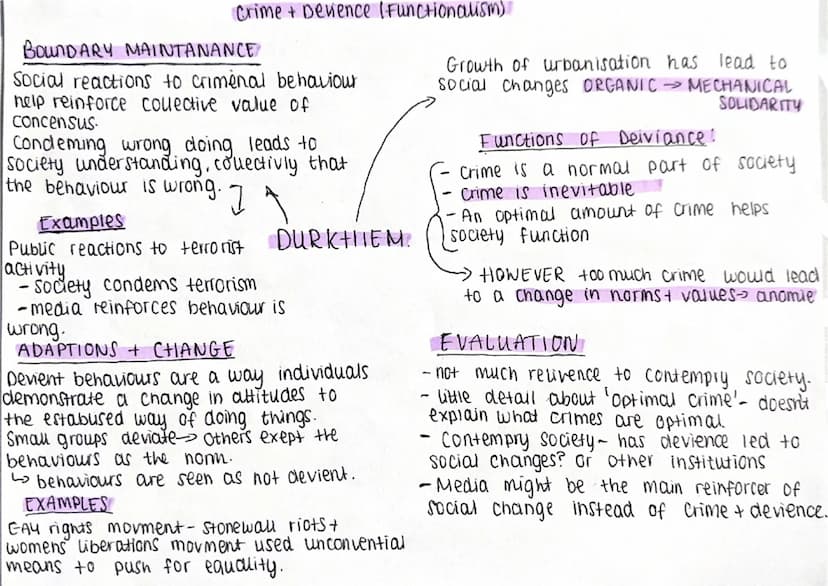 Crime + Devience (Functionalism)
BOUNDARY MAINTANANCE
Social reactions to criminal behaviour
help reinforce collective value of
concensus.
Condeming wrong doing leads to
society understanding, collectivly that
the behaviour is wrong.
Examples
Public reactions to terrorist
activity
- society condems terrorism
- media reinforces behaviour is
wrong.
ADAPTIONS + CHANGE
Devient behaviours are a way individuals
demonstrate a change in attitudes to
the estabused way of doing things.
Small groups deviate → others exept the
behaviours as the norm.
↳ behaviours are seen as not devient.
EXAMPLES
GAY rights movment - stonewall riots +
womens liberations movment used unconvential
means to push for equality.
DURKHIEM.
Growth of urbanisation has lead to
social changes ORGANIC → MECHANICAL
SOLIDARITY
Functions of Deiviance:
- Crime is a normal part of society
- Crime is inevitable
- An optimal amount of crime helps
society function
→ HOWEVER too much crime would lead
to a change in norms + values → anomie
EVALUATION
- not much relivence to contempry society.
- little detail about 'optimal crime' - doesnt
explain what crimes are optimal
- Contempry society - has devience led to
social changes? or other institutions
- Media might be the main reinforcer of
social change instead of crime + devience.